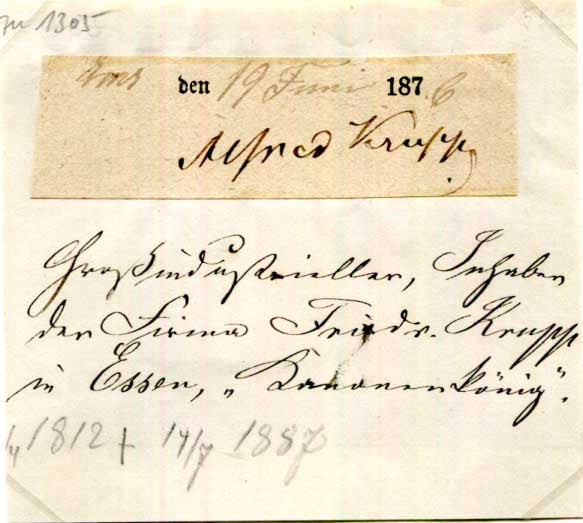 zu 1305
Ems den 19 Juni 1876
Alfred Krupp
Großindustrieller, Inhaber
der Firma Friedr. Krupp
in Essen, „Kanonenkönig".
/4 1812 † 14/7 1887